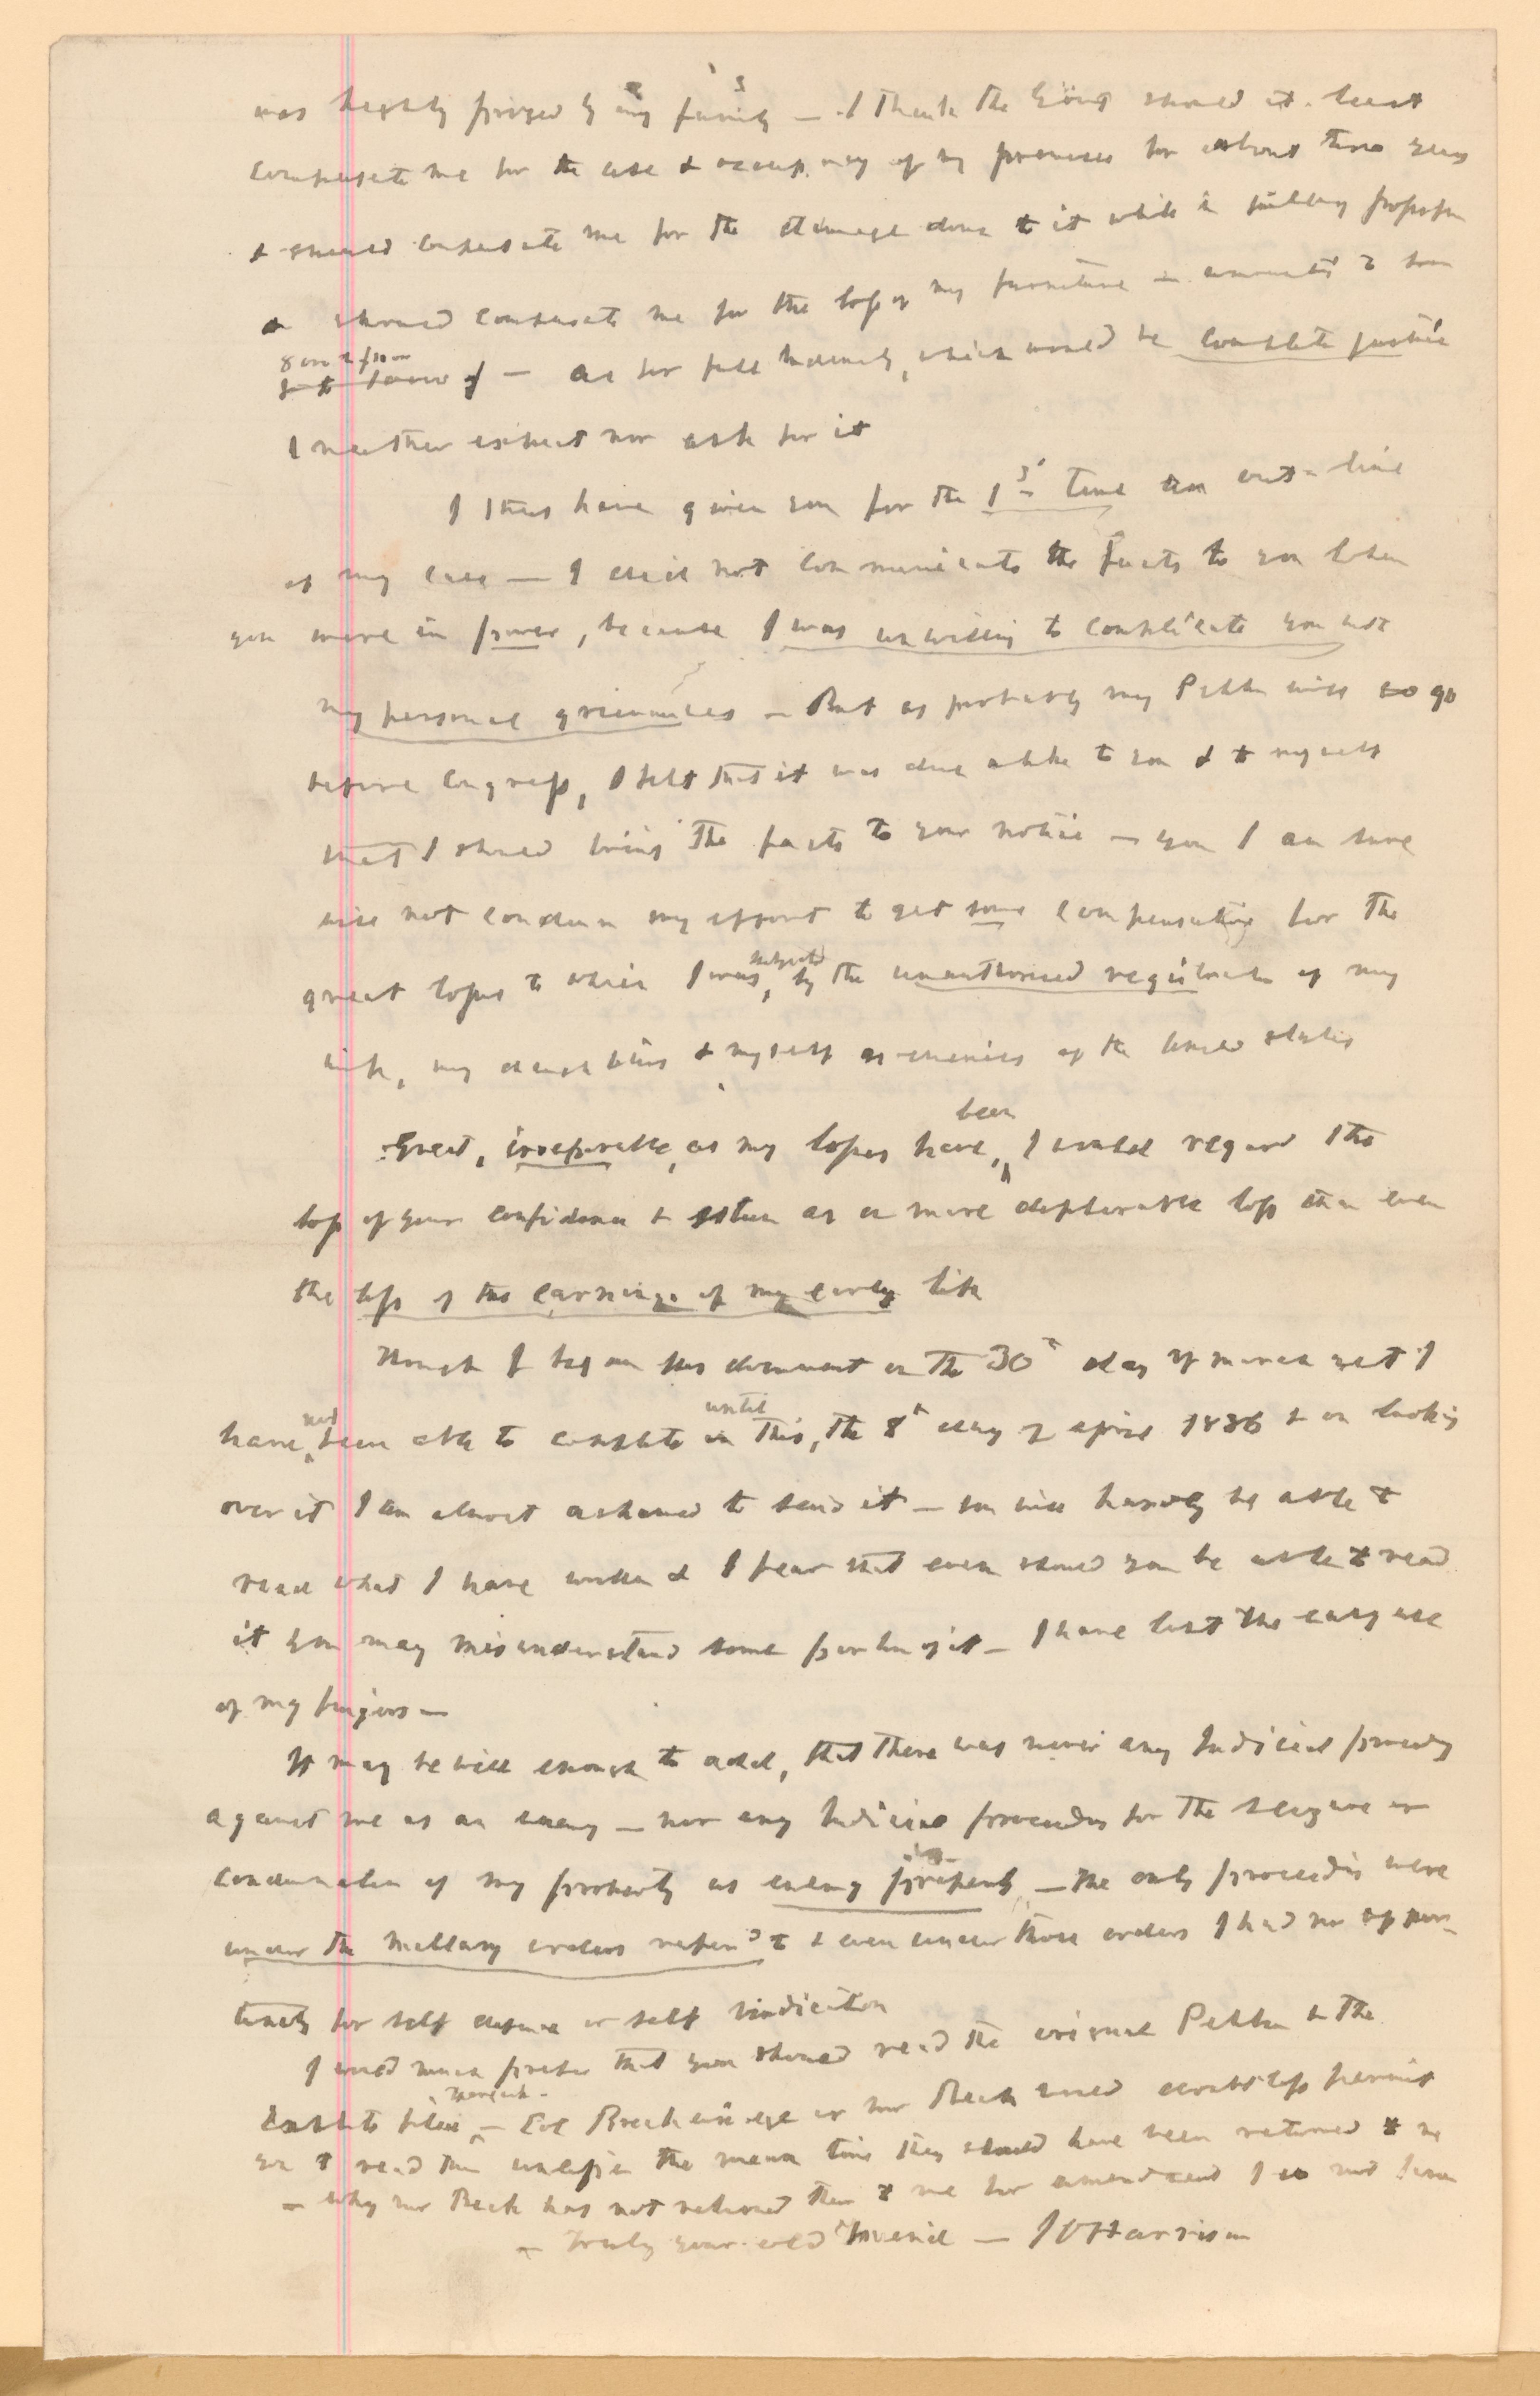 was highly prized by my family — I think the Govt should at least
compensate me for the use & occupancy of my premises for about three years
& should compensate me for the damage done to it while in military
& should compensate me for the loss of my furniture — to some
— as for full indemnity, which would be complete justice
I neither expect nor ask for it
I thus have given you for the 1st time an out-line
of my case — I did not communicate the facts to you when
you were in power, because I was unwilling to complicate you with
my personal grievances — But as probably my Petition will go
before Congress, I felt that it was due alike to you & to myself
that I should bring the facts to your notice — you I am sure
will not condemn my effort to get some compensation for the
great losses to which I was, subjected by the unauthorised of my
wife, my daughters & myself as enemies of the United States
Great, irreparable, as my losses have, been I would regard the
loss of your confidence & esteem as a more deplorable loss than even
the loss of the earnings of my early life
Though I began this document on the 30th day of March yet I
have, not been able to complete until this, the 8th day of April 1886 & on looking
over it I am almost ashamed to send it — you will hardly be able to
read what I have written & I fear that even should you be able to read
it you may misunderstand some portion of it — I have lost the easy use
of my fingers —
It may be well enough to add, that there was never any Judicial proceedings
against me as an enemy — nor any Judicial proceedings for the seizure or
condemnation of my property as enemy property — the only proceedings were
under the military orders referred to & even under those orders I had no oppor-
tunity for self defense or self vindication
I would much prefer that you should read the original Petition & the
Exhibits filed, therewith — Col Breckinridge or Mr Beck would doubtless permit
you to read them unless in the mean time they should have been returned to me
— why Mr Beck has not returned them to me for amendment I do not know
— Truly your old friend — J O Harrison